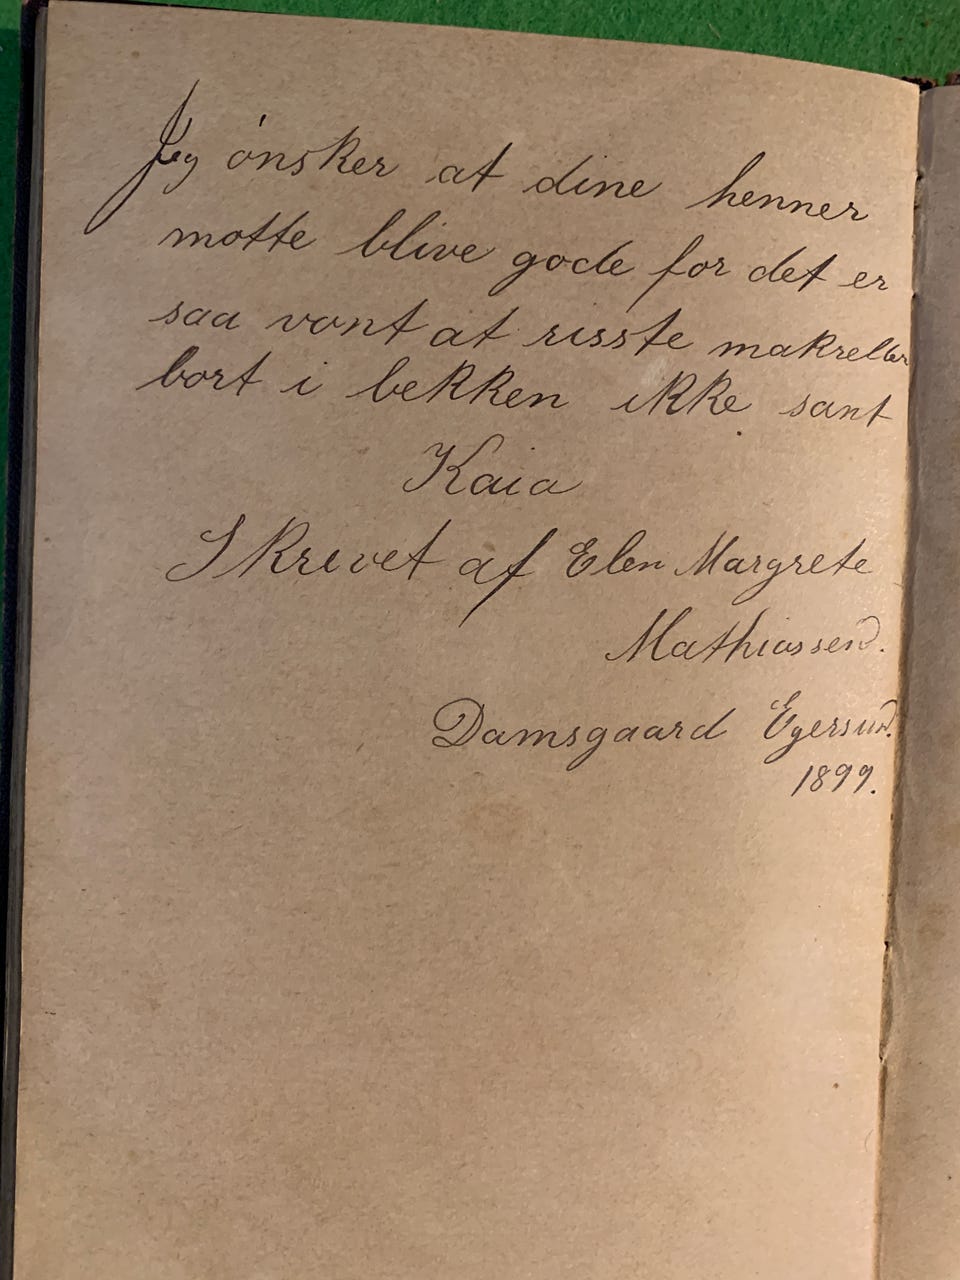 Jeg ónsker at dine henner
motte blive gode for det er
saa vont at risste makreller
bort i bekken ikke sant
Kaia
Skrevet af Elen Margrete
Mathiassen.
Damsgaard Egersund.
1899.